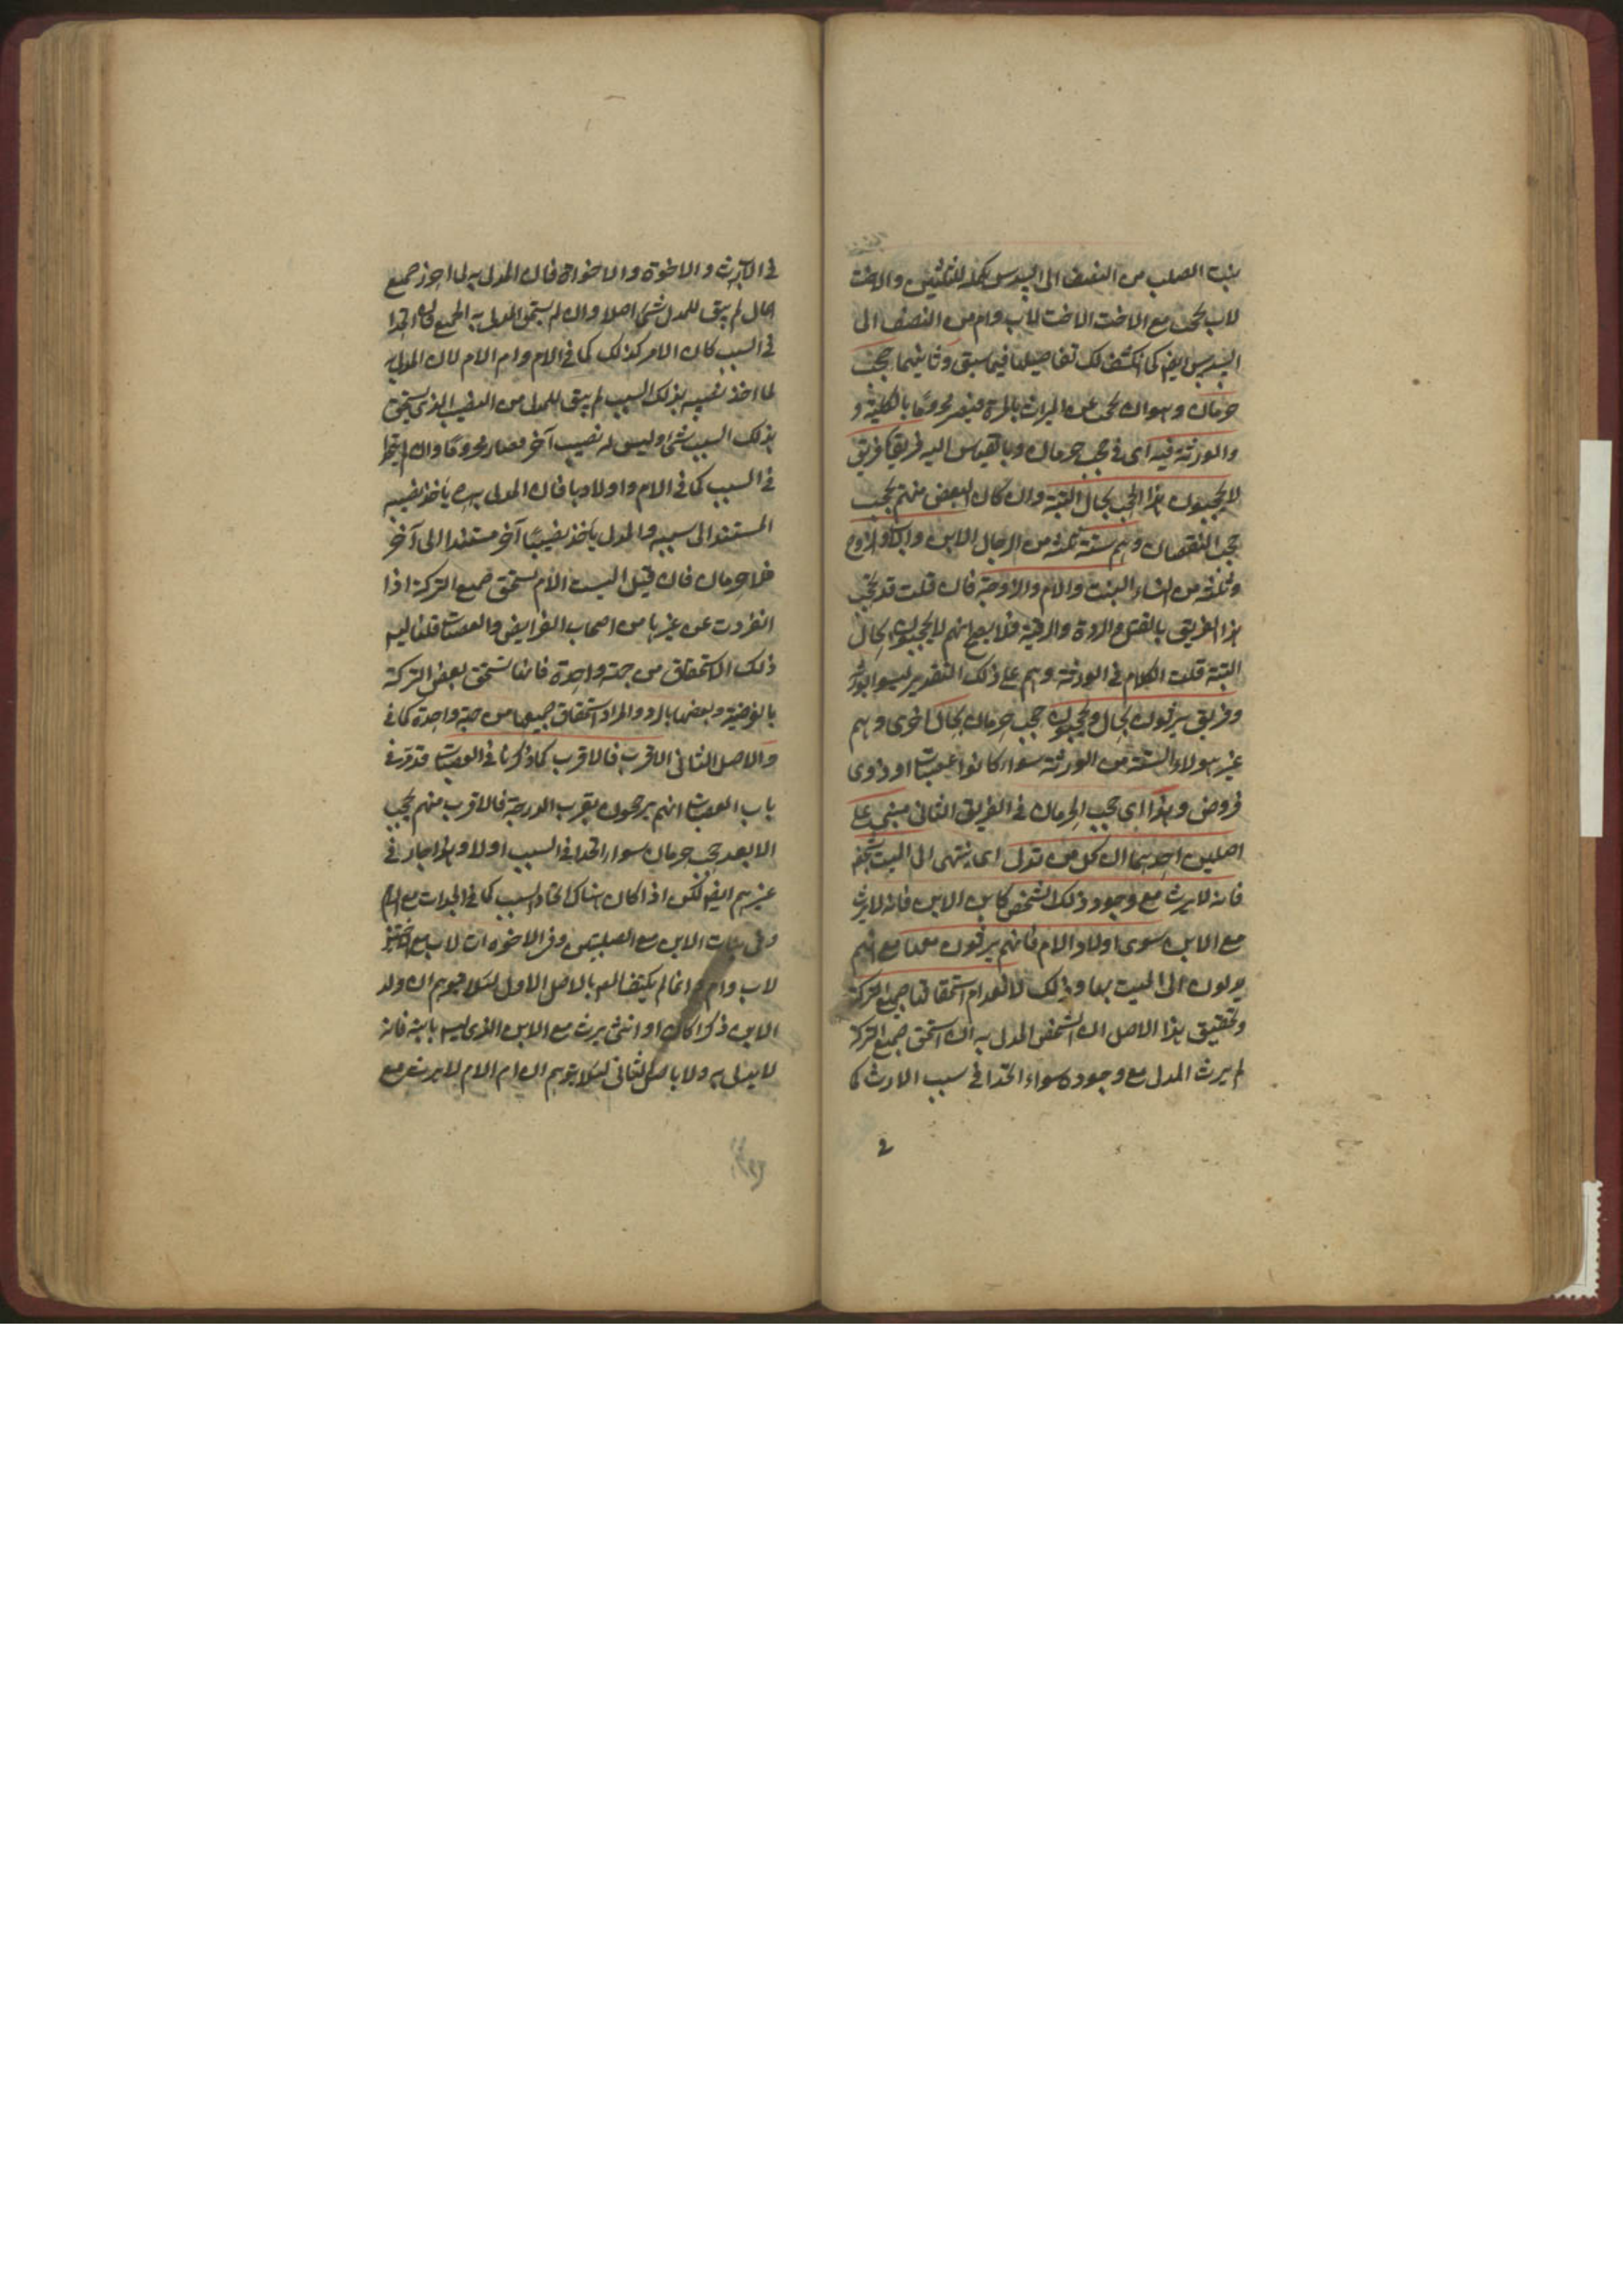 بنت الصلب من النصف الى السدس تكملة للثلثين والاخت
لاب تحجب مع الاخت لاب وام من النصف الى
السدس ايضا كما انكشف لك تفاصيلها فيما سبق وثانيهما حجب
حرمان وهو ان يحجب عن الميراث بالمرة فيصير محروما بالكلية و
والورثة فيه اى في حجب حرمان وبالقياس اليه فريقان فريق
لا يحجبون هذا الحجب بحال البتة وان كان البعض منهم يحجب
حجب النقصان وهم ستة ثلثة من الرجال الابن والاب والزوج
وثلثة من النساء البنت والام والزوجة فان قلت قد يحجب
هذا الفريق بالقتل والردة والرقية فلا يصح انهم لا يحجبون بحال
البتة قلت الكلام في الورثة وهم على ذلك التقدير ليسوا بورثة
وفريق يرثون بحال ويحجبون حجب حرمان بحال اخرى وهم
غير هولاء الستة من الورثة سواء كانوا عصبات او ذوى
فروض وهذا اى حجب الحرمان في الفريق الثانى مبنى على
اصلين احدهما ان كل من يدلى اى ينتهى الى الميت بشخص
فانه لا يرث مع وجود ذلك الشخص كابن الابن فانه لا يرث
مع الابن سوى اولاد الام فانهم يرثون معها مع انهم
يدلون الى الميت بها وذلك لانعدام استحقاقها جميع التركة
وتحقيق هذا الاصل ان الشخص المدلى به ان استحق جميع التركة
لم يرث المدلى مع وجوده سواء اتحدا في سبب الارث كما
في
في الاب والاخوة والاخوات فان المدلى به لما احرز جميع
المال لم يبق للمدلى شئ اصلا وان لم يستحق المدلى به الجميع فان اتحدا
في السبب كان الامر كذلك كما في الام وام الام لان المدلى به
لما اخذ نصيبه بذلك السبب لم يبق للمدلى من النصيب الذى يستحق
بذلك السبب شئ وليس له نصيب آخر فصار محروما وان لم يتحدا
في السبب كما في الام واولادها فان المدلى به يأخذ نصيبه
المستند الى سببه والمدلى يأخذ نصيبا آخر مستندا الى آخر
فلا حرمان فان قيل اليست الام تستحق جميع التركة اذا
انفردت عن غيرها من اصحاب الفرايض والعصبات قلنا ليس
ذلك الاستحقاق من جهة واحدة فانها تستحق بعض التركة
بالفرضية وبعضها بالرد والمراد استحقاق جميعها من جهة واحدة كما في
والاصل الثانى الاقرب فالاقرب كما ذكرنا في العصبات قد ذكر في
باب العصبات انهم يرجحون بقرب الدرجة فالاقرب منهم يحجب
الابعد حجب حرمان سواء اتحدا في السبب او لا وهذا جار في
غيرهم ايضا لكن اذا كان هناك اتحاد السبب كما في الجدات مع الام
وفى بنات الابن مع الصلبيتين وفى الاخوات لاب مع الاختين
لاب وام وانما لم يكتف بالاصل الاول لئلا يتوهم ان ولد
الابن ذكرا كان او انثى يرث مع الابن الذى ليس بابيه فانه
لا يدلى به ولا بالاصل الثانى لئلا يتوهم ان ام الام لا يرث مع